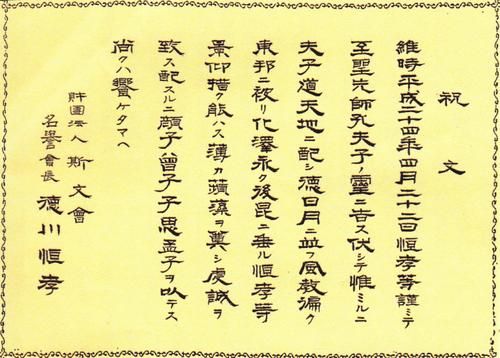 祝文
維時平成二十四年四月二十二日恒孝等謹ミテ
至聖先師孔夫子ノ靈ニ告ス伏シテ惟ミルニ
夫子道天地ニ配シ德日月ニ並フ風教徧ク
東邦ニ被リ化澤永ク後昆ニ垂ル恒孝等
景仰措ク能ハス薄カ蘋藻ヲ奠シ虔誠ヲ
致ス配スルニ顔子曾子子思孟子ヲ以テス
尚クハ饗ケタマヘ
財團法人斯文會
名譽會長 德川恒孝